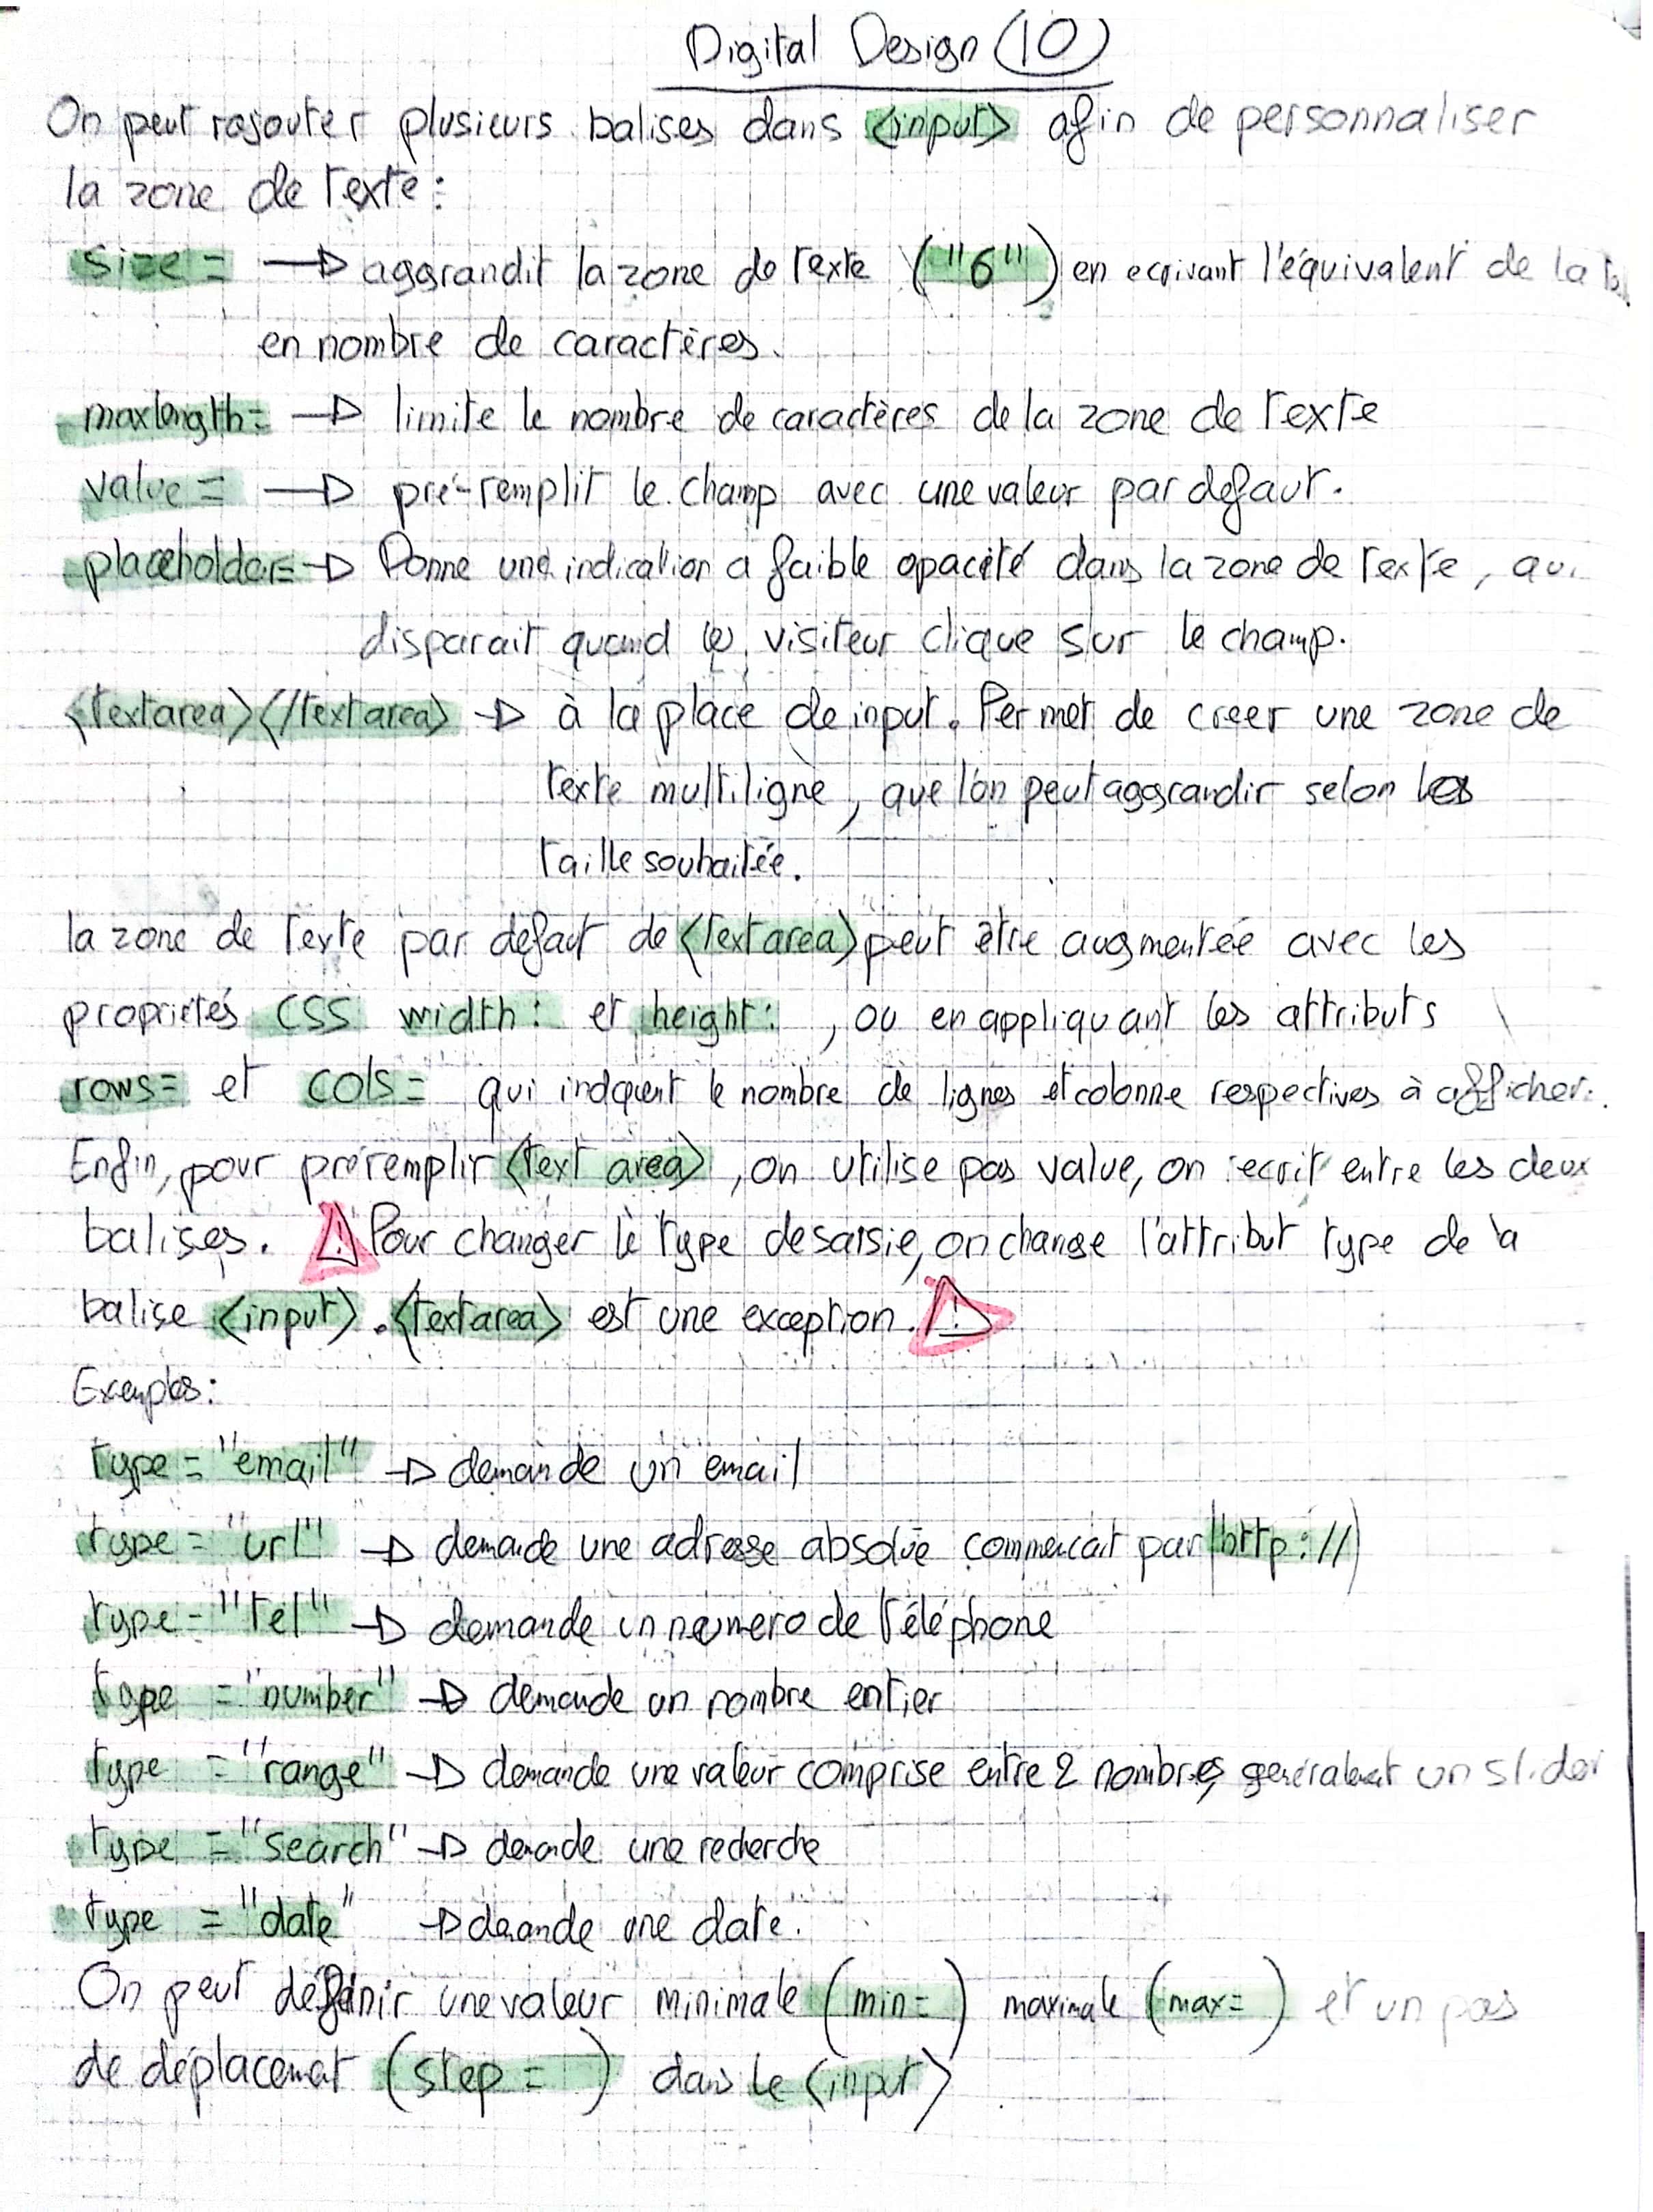 Digital Design (10)
On peut rajouter plusieurs balises dans <input> afin de personnaliser
la zone de texte :
size = → aggrandit la zone de texte ("6") en ecrivant l'équivalent de la
en nombre de caractères.
maxlength= → limite le nombre de caractères de la zone de texte
value = → pré-remplit le champ avec une valeur par defaut.
placeholder= → Donne une indication a faible opacité dans la zone de texte, qui
disparait quand le visiteur clique sur le champ.
<textarea></textarea> → à la place de input. Permet de creer une zone de
texte multiligne, que l'on peut aggrandir selon
taille souhaitée.
la zone de texte par defaut de <textarea> peut être augmentée avec les
propriétés CSS width: et height: , ou en appliquant les attributs
rows= et cols= qui indquent le nombre de lignes et colonne respectives à afficher.
Enfin, pour préremplir <text area>, on utilise pas value, on ecrit entre les deux
balises. ⚠ Pour changer le type de saisie, on change l'attribut type de la
balise <input>. <textarea> est une exception. ⚠
Exemples:
type = "email" → demande un email
type = "url" → demande une adresse absolue commencait par (http://)
type = "tel" → demande un numero de téléphone
type = "number" → demande un nombre entier
type = "range" → demande une valeur comprise entre 2 nombres, generalement un slider
type = "search" → demande une recherche
type = "date" → demande une date.
On peut définir une valeur minimale (min= ) maximale (max= ) et un pas
de déplacemat (step = ) dans le <input>